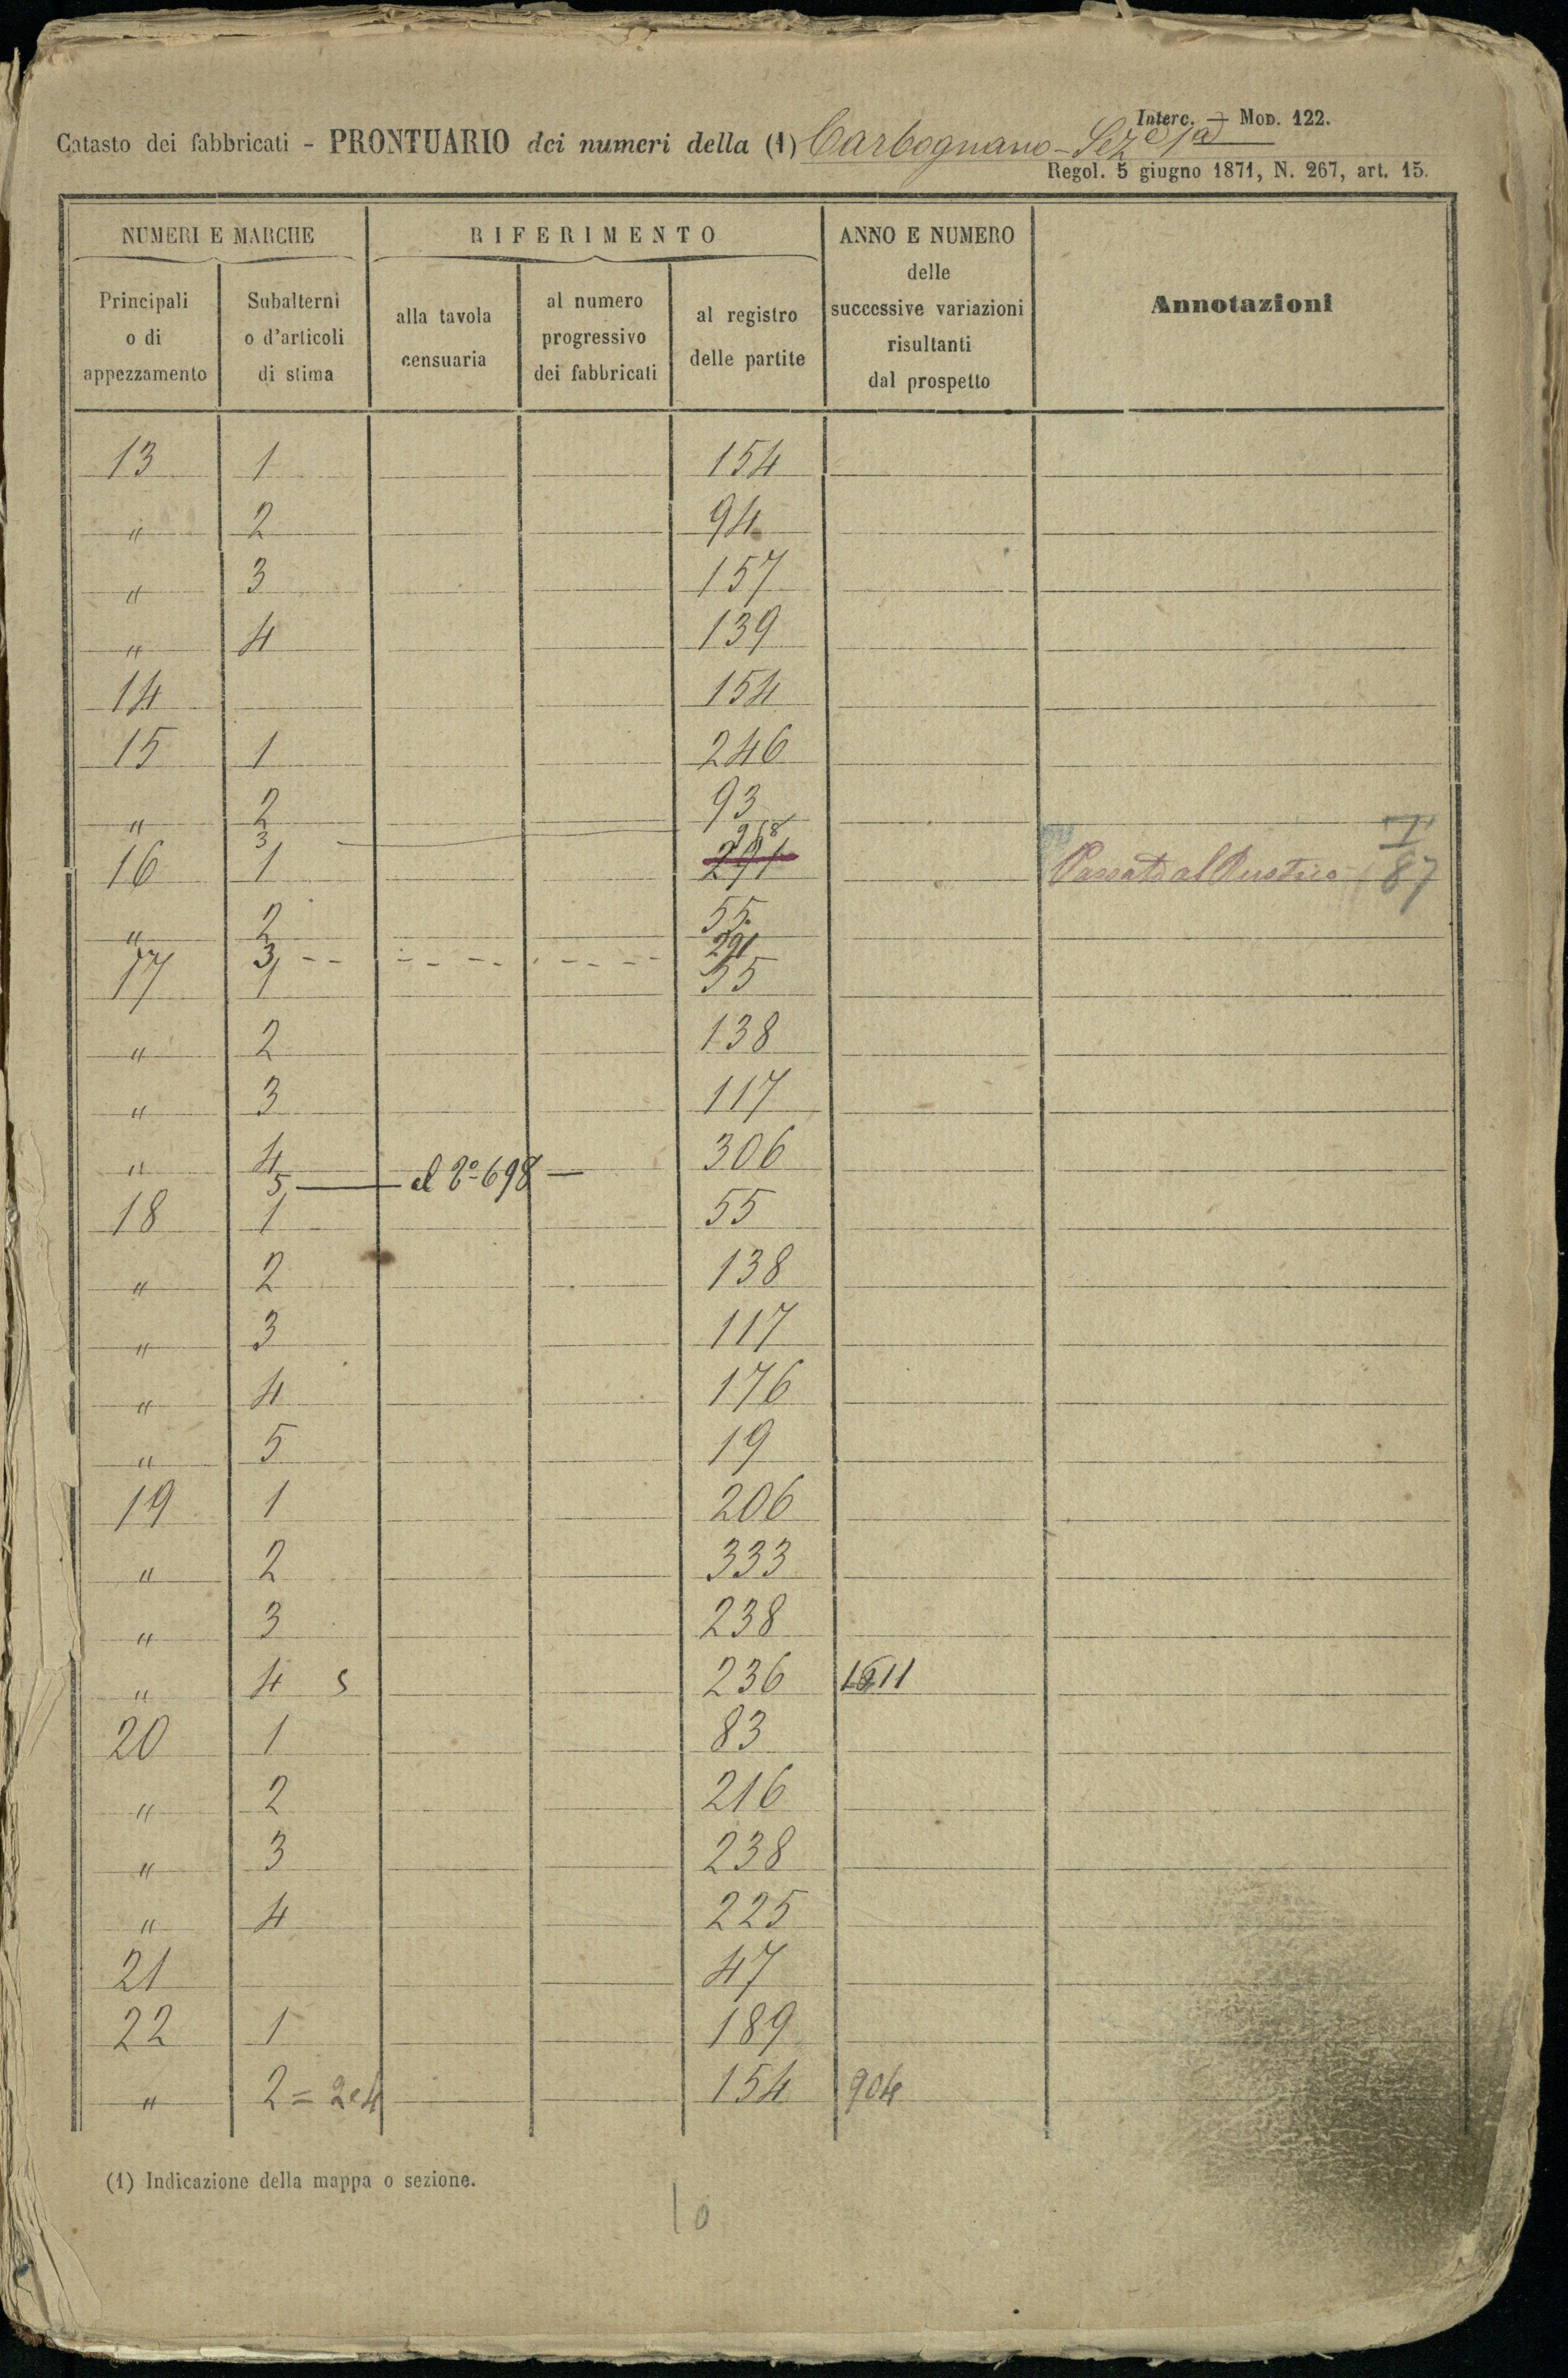 Interc. — Mod. 122.
Catasto dei fabbricati - PRONTUARIO dei numeri della (1) Carbognano - Sez.e 1a
Regol. 5 giugno 1871, N. 267, art. 15.
NUMERI E MARCHE
RIFERIMENTO
ANNO E NUMERO
delle
successive variazioni
risultanti
dal prospetto
Annotazioni
Principali
o di
appezzamento
Subalterni
o d'articoli
di stima
alla tavola
censuaria
al numero
progressivo
dei fabbricati
al registro
delle partite
13 1 154
" 2 94
" 3 157
" 4 139
14 154
15 1 246
" 2 93
3 268
16 1 291 Passato al Rustico I/87
" 2 55
3 291
17 1 55
" 2 138
" 3 117
" 4 306
5 — al 2° 698 —
18 1 55
" 2 138
" 3 117
" 4 176
" 5 19
19 1 206
" 2 333
" 3 238
" 4 5 236 1611
20 1 83
" 2 216
" 3 238
" 4 225
21 47
22 1 189
" 2 = 2e4 154 904
(1) Indicazione della mappa o sezione.
10